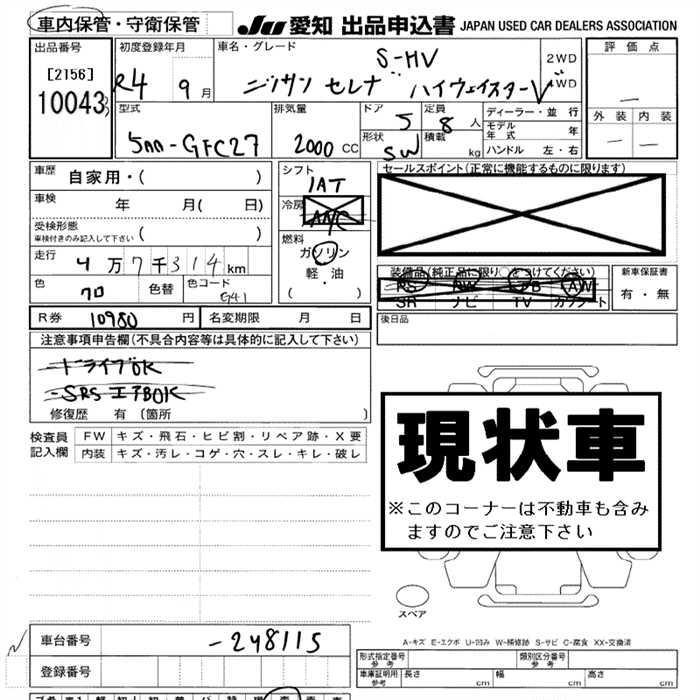 車内保管・守衛保管 JU 愛知 出品申込書 JAPAN USED CAR DEALERS ASSOCIATION
出品番号 [2156] 10043
初度登録年月 R4 9月
車名・グレード S-HV ニッサン セレナ ハイウェイスターV
2WD 4WD
評価点 外装 内装
型式 5AA-GFC27
排気量 2000 CC
ドア 5 定員 8人
形状 SW 積載 kg
ディーラー・並行
モデル年式 年
ハンドル 左・右
車歴 自家用・( )
車検 年 月( 日)
受検形態 車検付きのみ記入して下さい ( )
走行 4万7千314km
色 クロ 色替 色コード G41
シフト IAT
冷房
燃料 ガソリン 軽・油 ( ・ )
セールスポイント(正常に機能するものに限ります)
装備品(純正品に限り○をつけてください)
PS PW AW
SR ナビ TV カワシート
新車保証書 有・無
R券 10980円 名変期限 月 日
後日品
注意事項申告欄(不具合内容等は具体的に記入して下さい)
ドライブOK
-SRSエアBOK
修復歴 有 〔箇所 〕
検査員記入欄
FW キズ・飛石・ヒビ割・リペア跡・X要
内装 キズ・汚レ・コゲ・穴・スレ・キレ・破レ
現状車
※このコーナーは不動車も含みますのでご注意下さい
スペア
A-キズ E-エクボ U-凹み W-補修跡 S-サビ C-腐食 XX-交換済
車台番号 -248115
登録番号
形式指定番号 参考 類別区分番号 参考
車庫証明用 参考 長さ cm 幅 cm 高さ cm